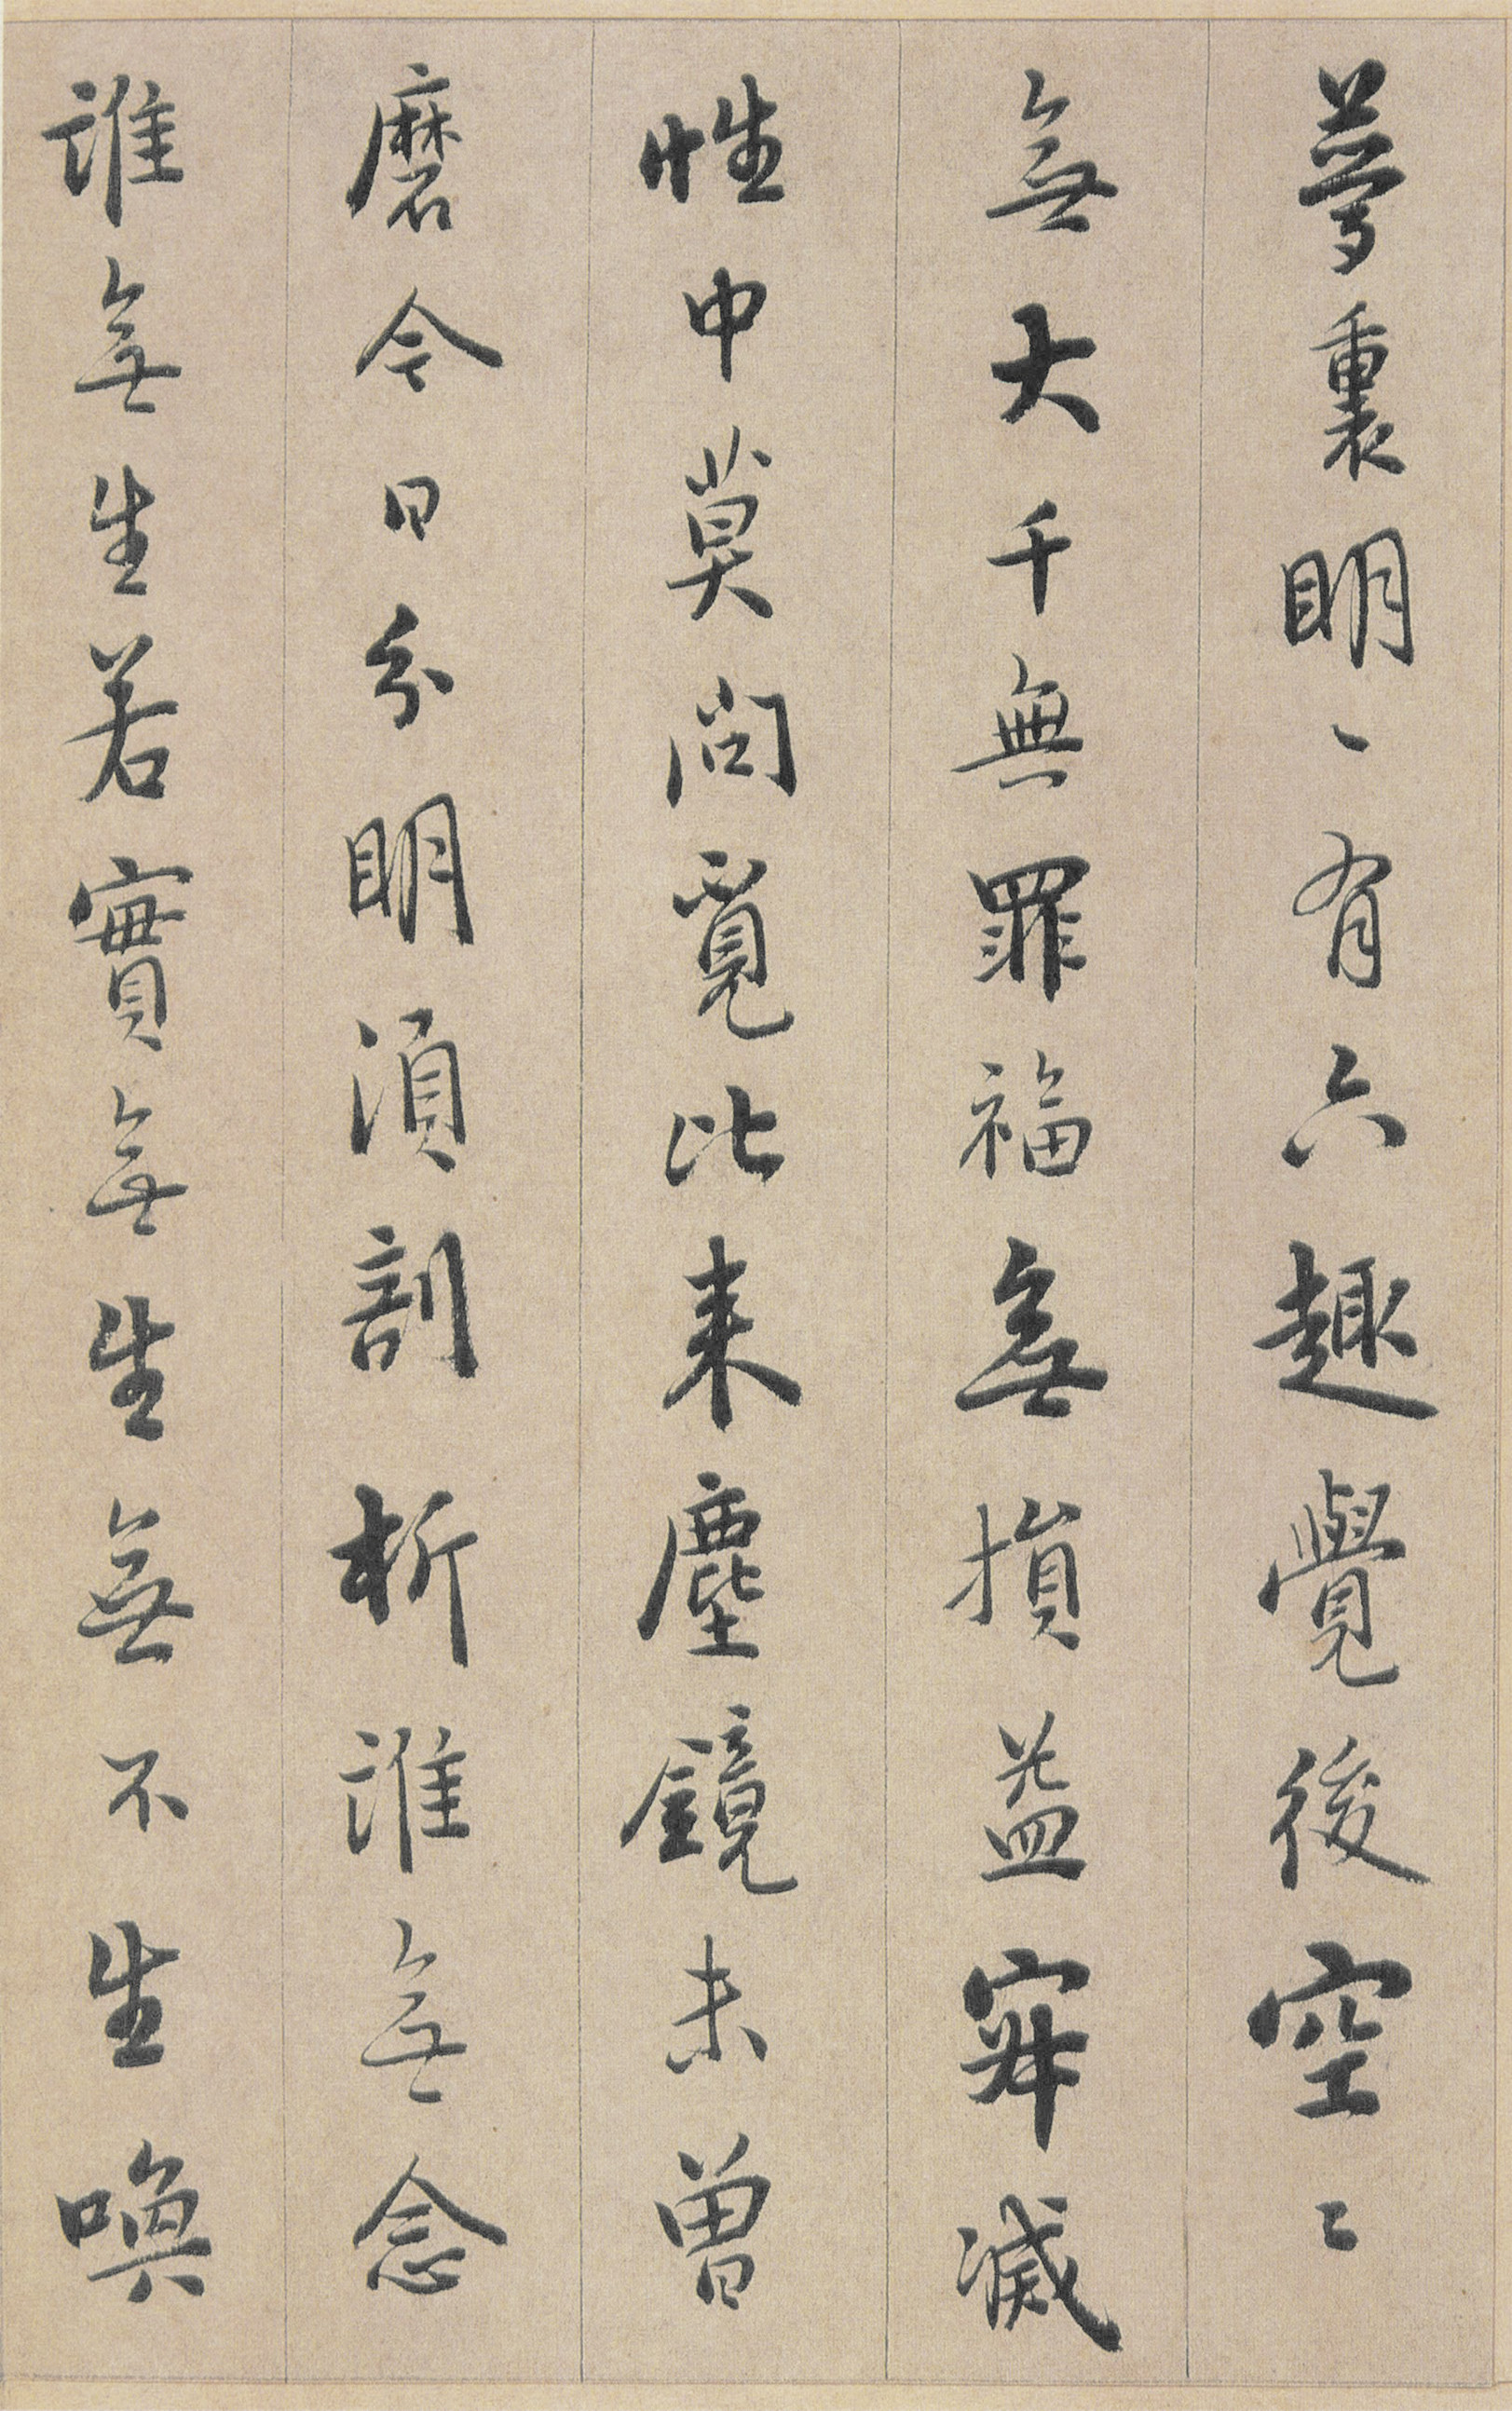 夢裏明丶有六趣覺後空〻
無大千無罪福無損益寂滅
性中莫問覓比来塵鏡未曾
磨今日分明須剖析誰無念
誰無生若實無生無不生喚